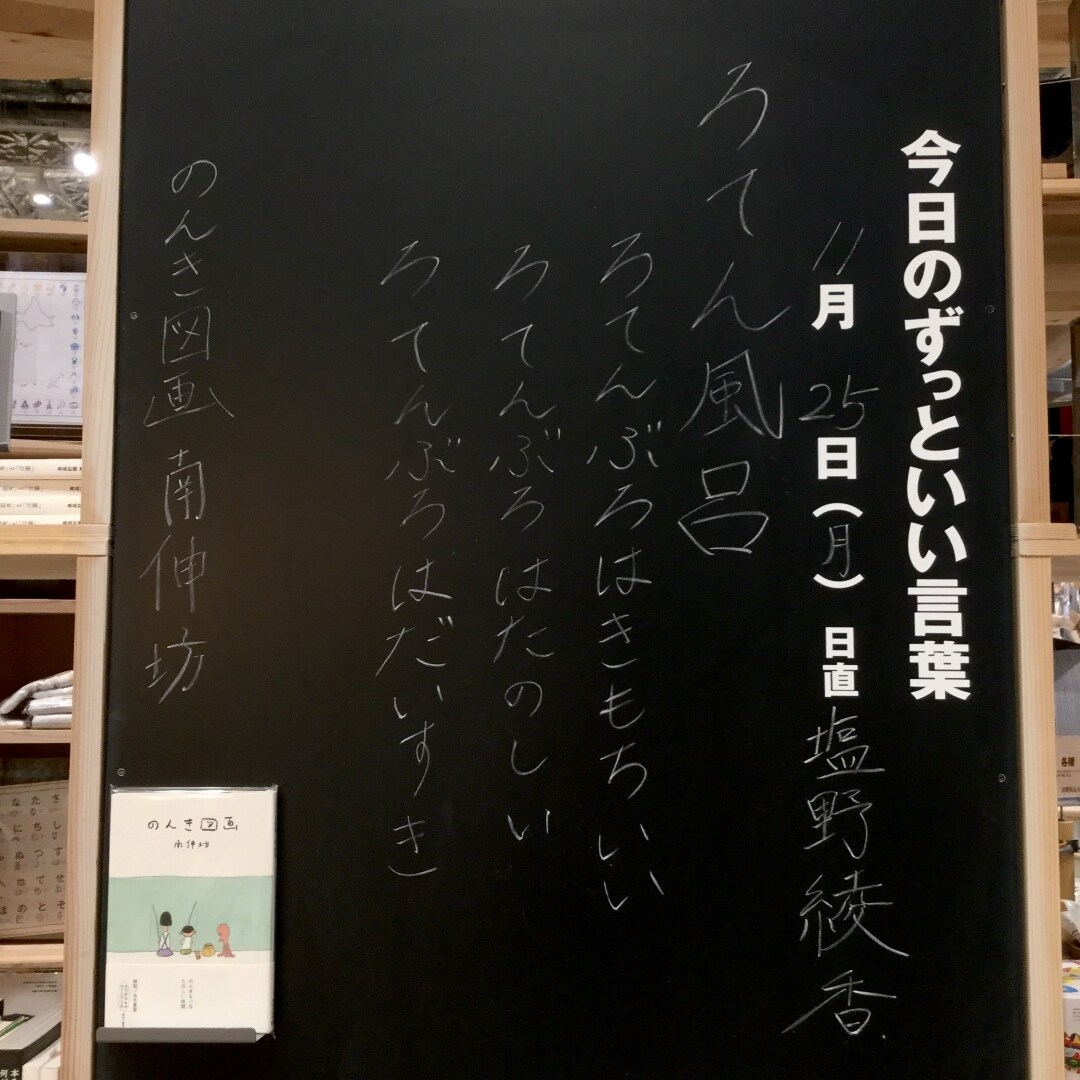 今日のずっといい言葉
11月25日(月) 日直 塩野綾香
ろてん風呂
ろてんぶろはきもちいい
ろてんぶろはたのしい
ろてんぶろはだいすき
のんき図画 南伸坊
のんき図画
南伸坊
各種